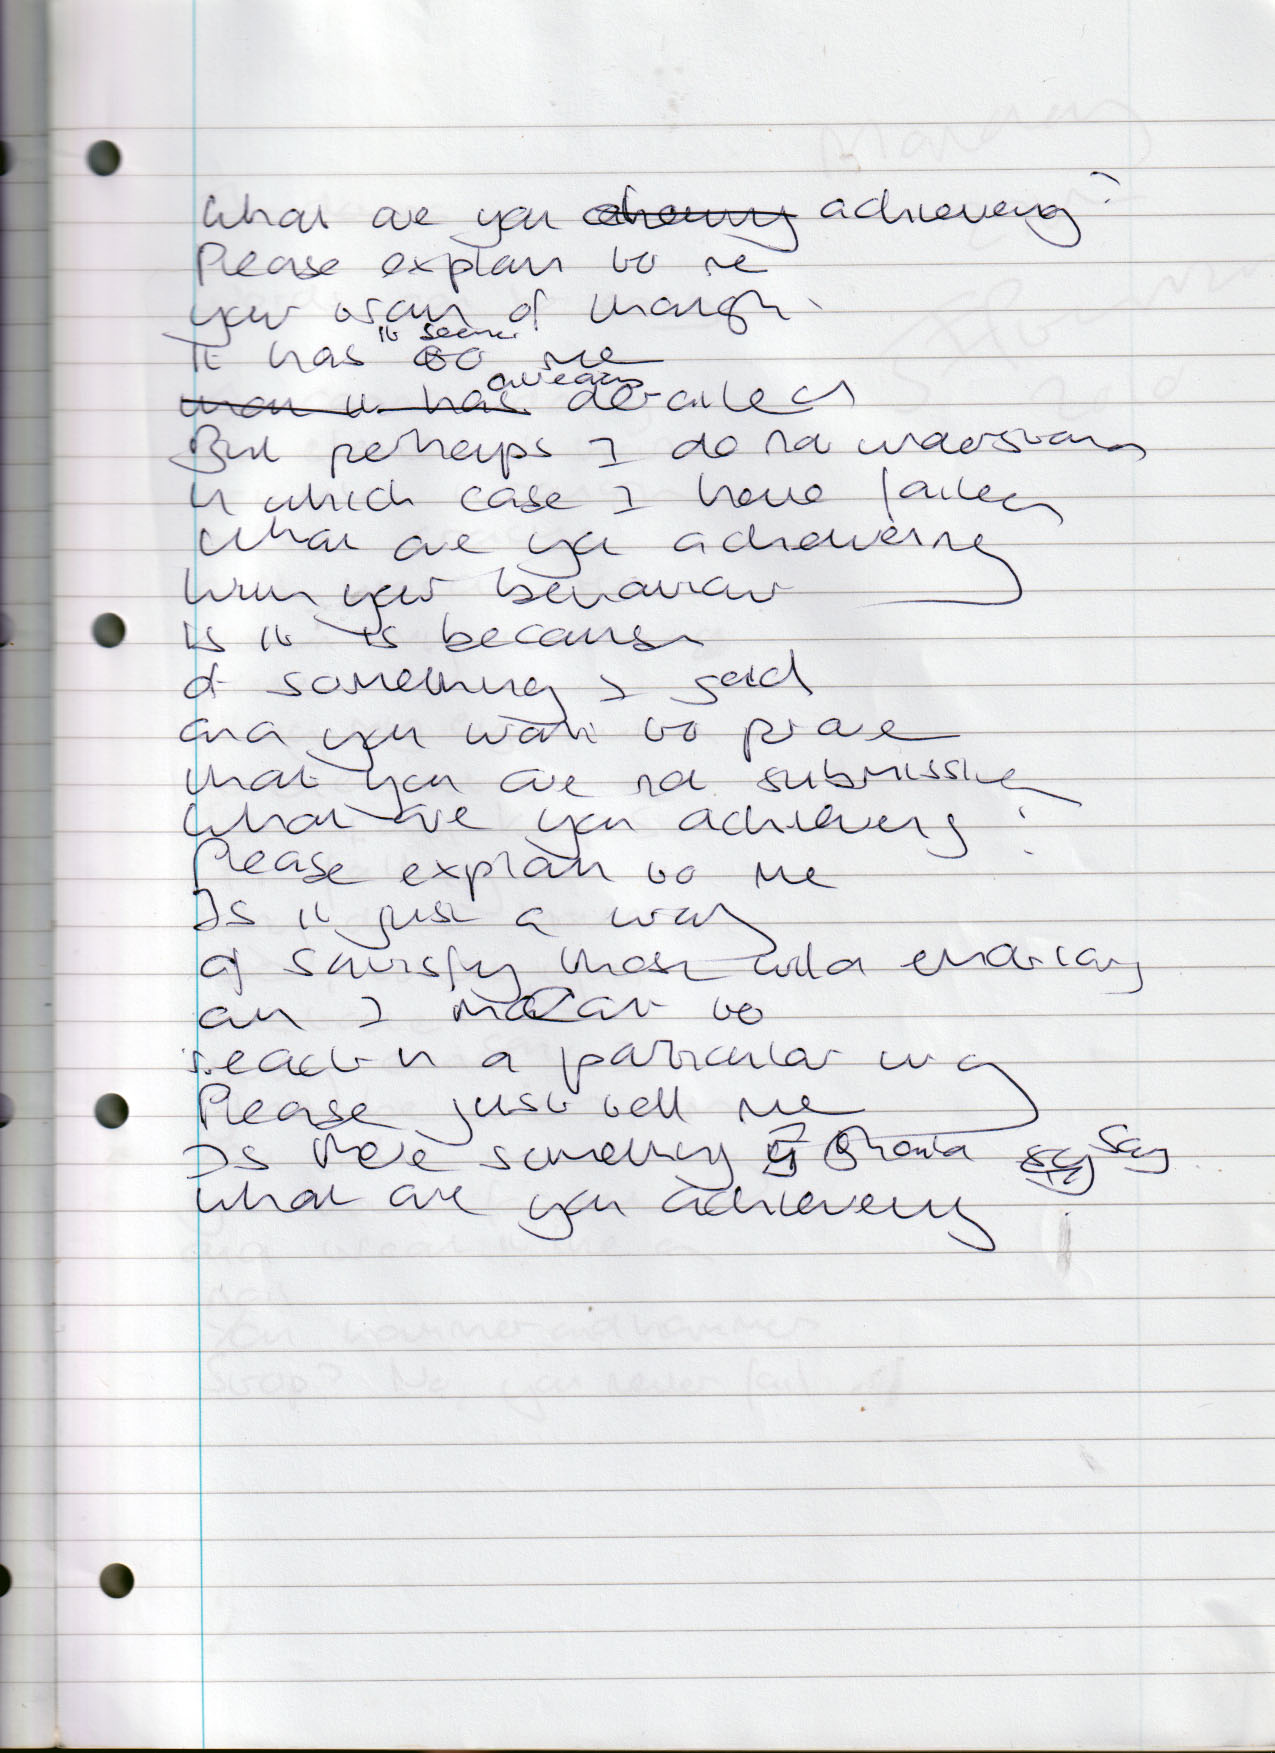 What are you achieving?
Please explain to me
your train of thought.
It has it seems to me
already derailed
But perhaps I do not understand
in which case I have failed
What are you achieving
With your behaviour
Is it is because
of something I said
and you want to prove
that you are not submissive
What are you achieving?
Please explain to me
Is it just a way
of satisfy those wild
am I meant to
react in a particular way
Please just tell me
Is there something I should say
What are you achieving?
You hammer and hammer
Stop? No, you never fail